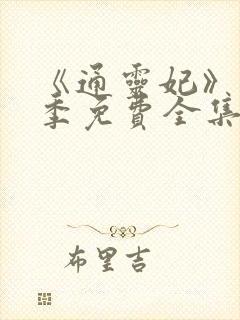 《通靈妃》
季免費全集
布里吉